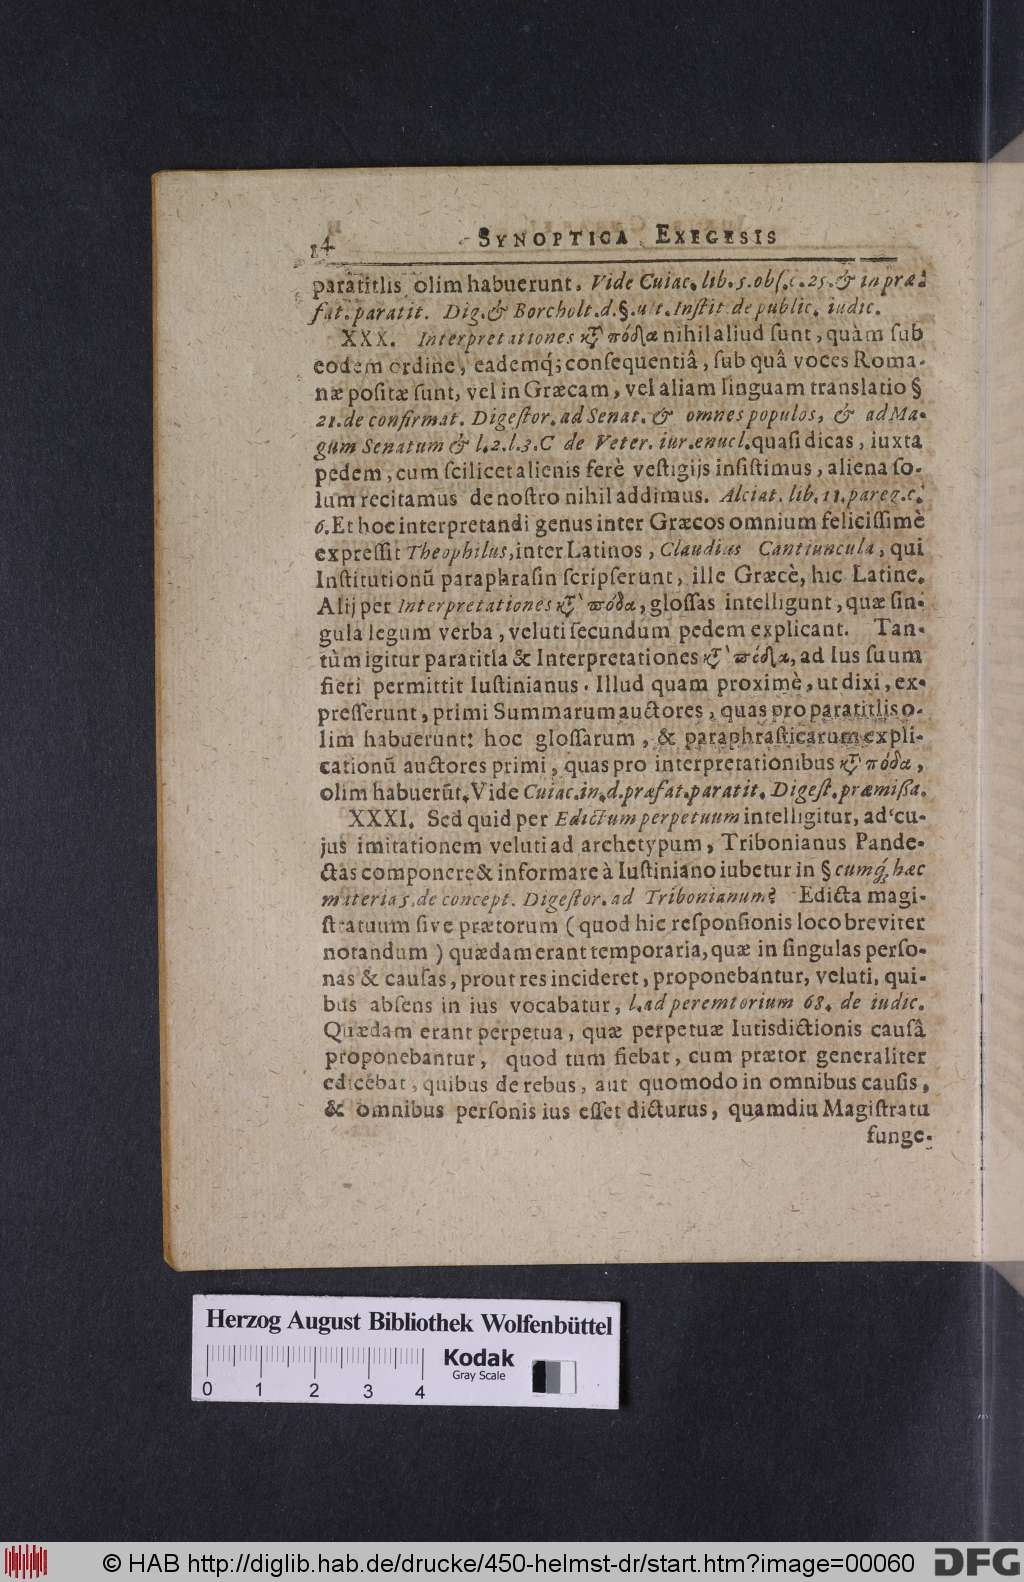 14 SYNOPTICA EXEGESIS
paratitlis olim habuerunt. Vide Cuiac. lib. 5. obſ. c. 25. & in præ-
fat. paratit. Dig. & Borcholt. d. §. ult. Inſtit de public. iudic.
XXX. Interpretationes κτ̀ πόδα nihil aliud ſunt, quàm ſub
eodem ordine, eademq́; conſequentiâ, ſub quâ voces Roma-
næ poſitæ ſunt, vel in Græcam, vel aliam linguam translatio §
21. de confirmat. Digeſtor. ad Senat. & omnes populos, & ad Ma-
gum Senatum & l. 2. l. 3. C de Veter. iur. enucl. quaſi dicas, iuxta
pedem, cum ſcilicet alienis ferè veſtigijs inſiſtimus, aliena ſo-
lum recitamus de noſtro nihil addimus. Alciat. lib. 11. pareg. c.
6. Et hoc interpretandi genus inter Græcos omnium feliciſſimè
expreſſit Theophilus, inter Latinos, Claudius Cantiuncula, qui
Inſtitutionū paraphraſin ſcripſerunt, ille Græcè, hic Latine.
Alij per Interpretationes κτ̀ πόδα, gloſſas intelligunt, quæ ſin-
gula legum verba, veluti ſecundum pedem explicant. Tan-
tùm igitur paratitla & Interpretationes κτ̀ πόδα, ad Ius ſuum
fieri permittit Iuſtinianus. Illud quam proximè, ut dixi, ex-
preſſerunt, primi Summarum auctores, quas pro paratitlis o-
lim habuerunt: hoc gloſſarum, & paraphraſticarum expli-
cationū auctores primi, quas pro interpretationibus κτ̀ πόδα,
olim habuerūt. Vide Cuiac. in. d. præfat. paratit. Digeſt. præmißa.
XXXI. Sed quid per Edictum perpetuum intelligitur, ad cu-
jus imitationem veluti ad archetypum, Tribonianus Pande-
ctas componere & informare à Iuſtiniano iubetur in § cumq́; hæc
materia 5. de concept. Digeſtor. ad Tribonianum? Edicta magi-
ſtratuum ſive prætorum (quod hic reſponſionis loco breviter
notandum) quædam erant temporaria, quæ in ſingulas perſo-
nas & cauſas, prout res incideret, proponebantur, veluti, qui-
bus abſens in ius vocabatur, l. ad peremtorium 68. de iudic.
Quædam erant perpetua, quæ perpetuæ Iutisdictionis cauſâ
proponebantur, quod tum fiebat, cum prætor generaliter
edicebat, quibus de rebus, aut quomodo in omnibus cauſis,
& omnibus perſonis ius eſſet dicturus, quamdiu Magiſtratu
funge-
Herzog August Bibliothek Wolfenbüttel
0 1 2 3 4
Kodak
Gray Scale
© HAB http://diglib.hab.de/drucke/450-helmst-dr/start.htm?image=00060
DFG